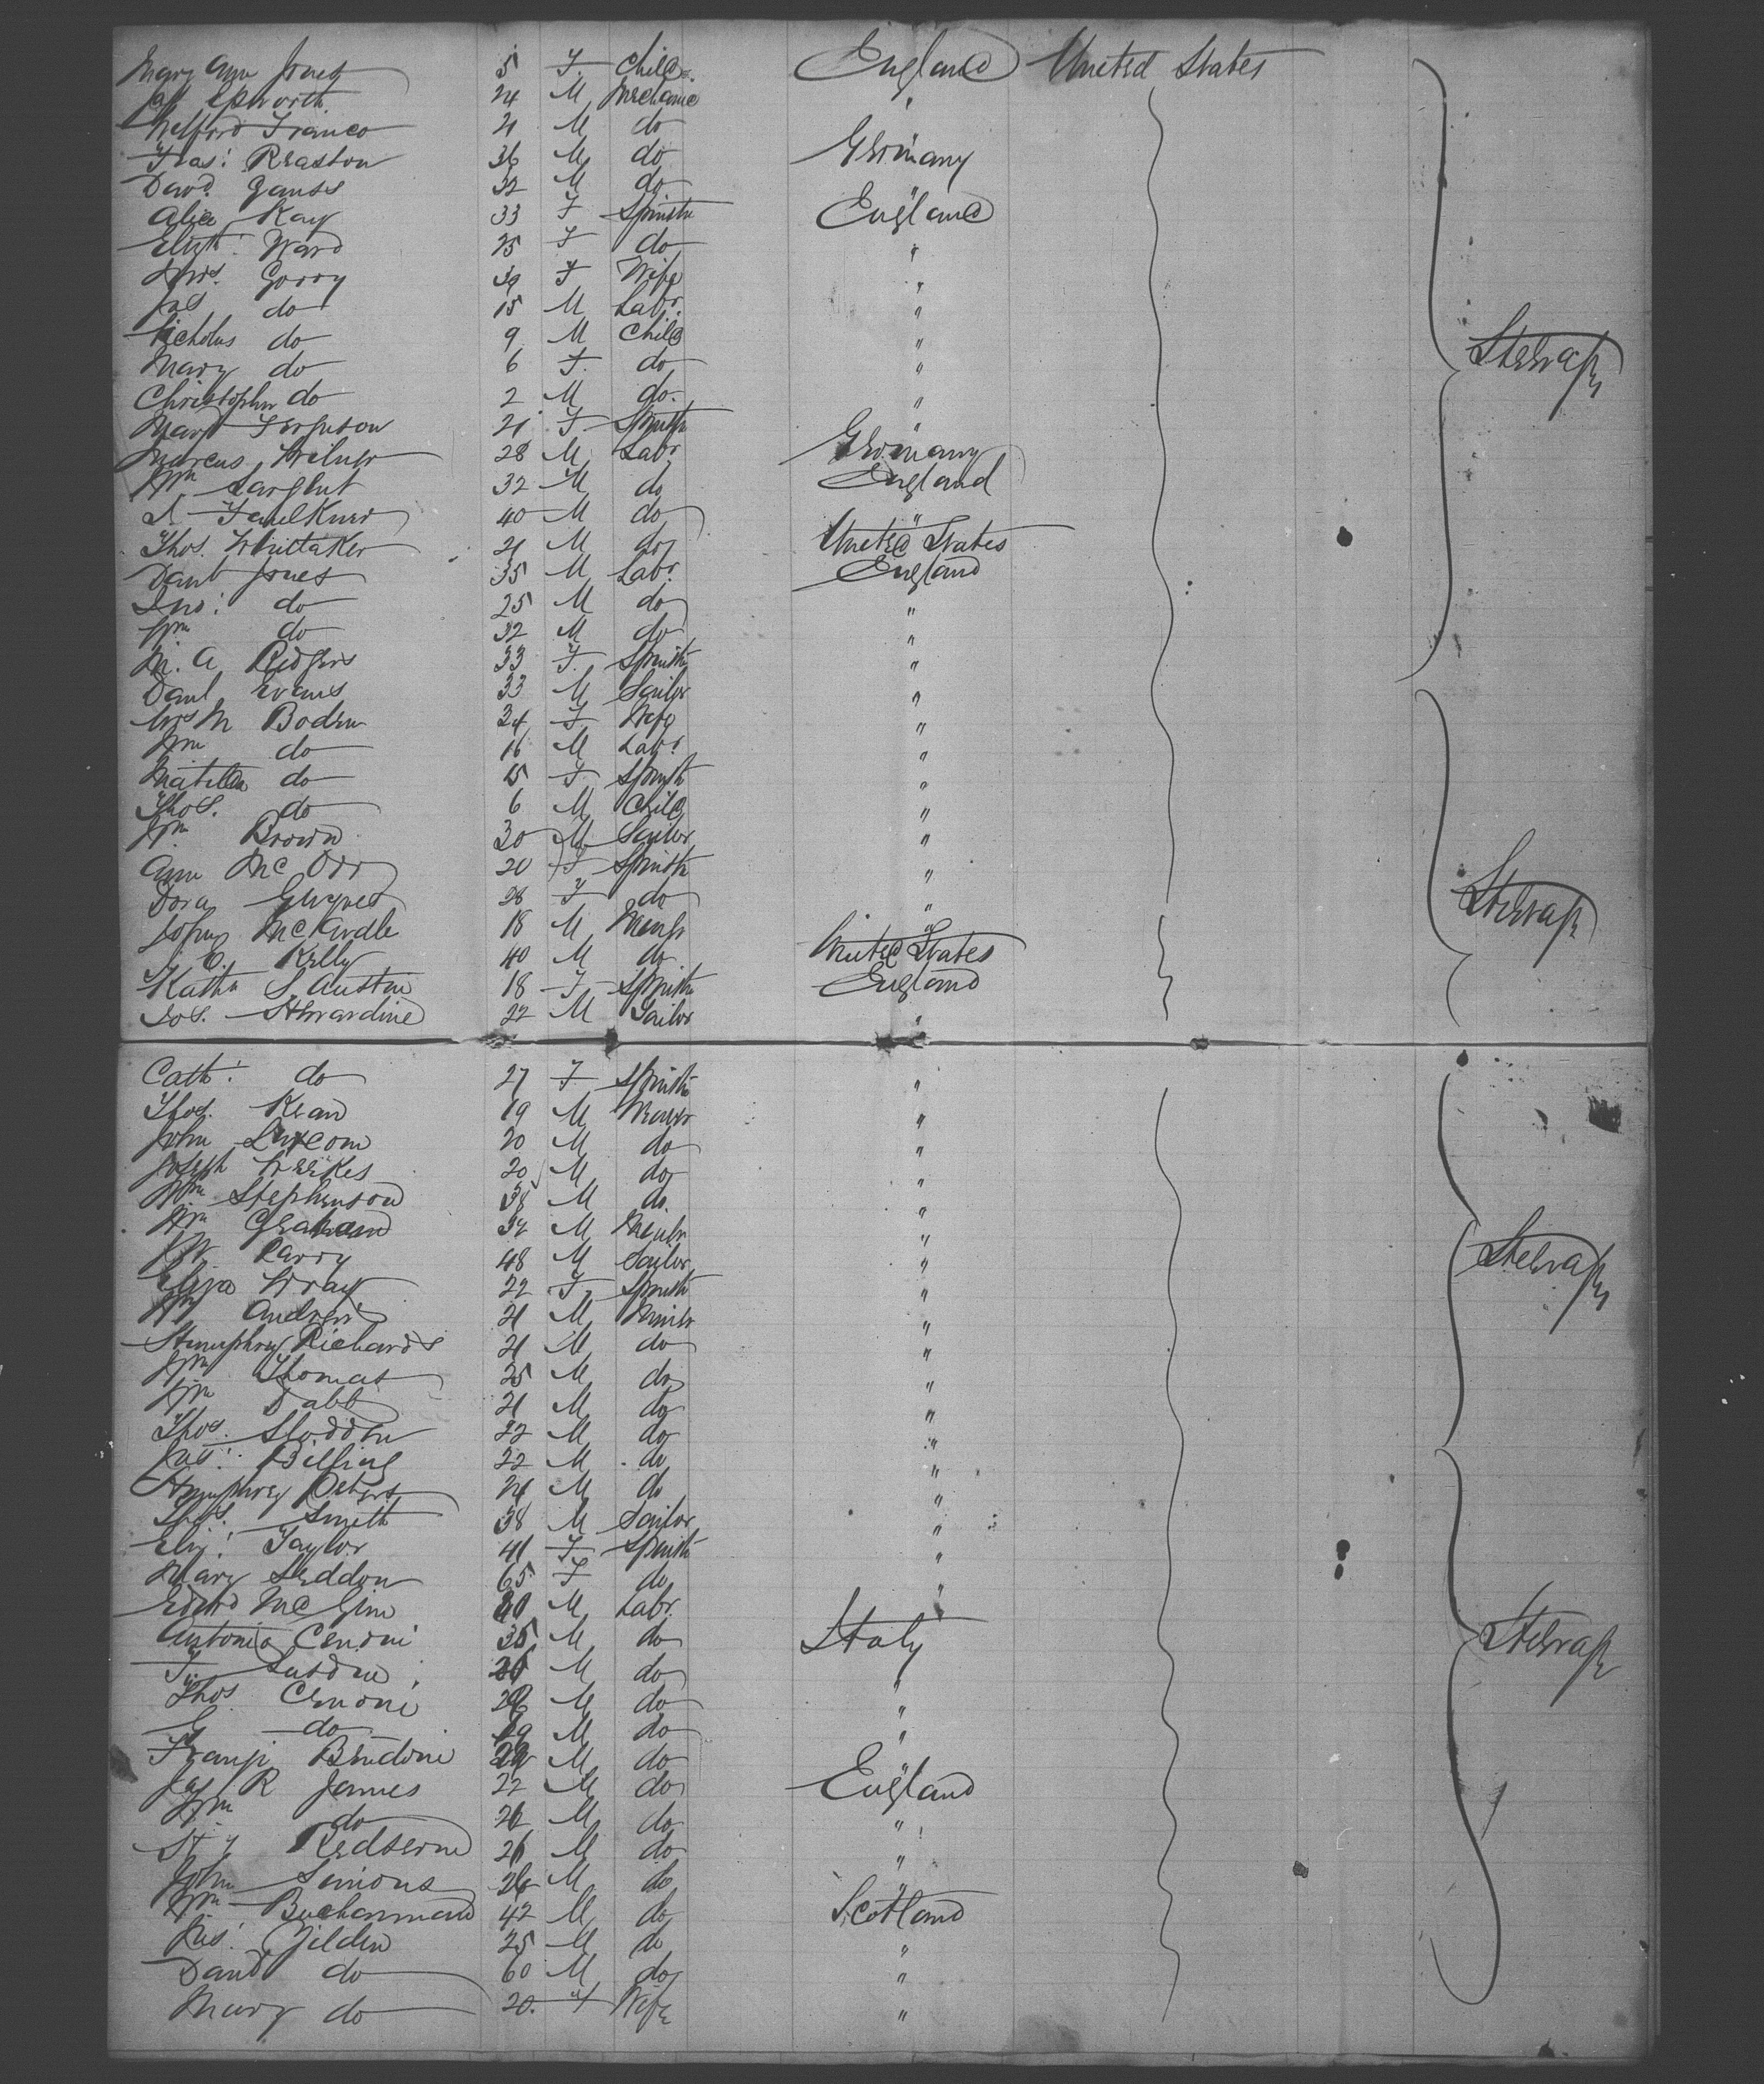 Mary Ann Jones 5 F. Child England United States
Jas Epworth 24 M Mechanic "
Franco 21 M do
Fras: Reaston 36 M do Germany
Davd. Gauss 32 M do "
Alice Kay 33 F Spinstr England
Elizth: Ward 25 F do "
Mrs. Gorry 39 F Wife "
Jas do 15 M Labr. "
Nicholas do 9 M Child "
Mary do 6 F. do "
Christopher do 2 M do. "
Margt Ferguson 21 F Spinstr "
Marcus 28 M Labr Germany
Wm Sargent 32 M do England
S Faulkner 40 M do "
Thos. Whittaker 21 M do United States
Danl Jones 35 M Labr. England
Jno: do 25 M do "
Wm do 32 M do "
M. A. Rodgers 33 F. Spinstr "
Danl Evans 33 M Sailor "
Mrs M Boden 34 F Wife "
Wm do 16 M Labr "
Matilda do 15 F Spinstr "
Thos. do 6 M Child "
Wm Brown 30 M Sailor "
Ann Mc Orr 20 F Spinstr "
Dora 28 F do "
John McArdle 18 M "
Kelly 40 M do United States
Kathn S Austin 18 F Spinstr England
Jos. 22 M Sailor "
Cath: do 27 F Spinstr "
Thos. Kean 19 M "
John Luxcom 20 M do "
Joseph Weekes 20 M do "
Wm Stephenson 38 M do. "
Wm Graham 32 M "
W. Parry 48 M Sailor "
Eliza Wray 22 F Spinstr "
Wm Andrew 21 M Miner "
Humphrey Richards 21 M do "
Wm Thomas 25 M do "
Wm Dabb 21 M do "
Thos. Sloddon 22 M do "
Jas: Billing 22 M do "
Humphrey Peters 24 M do "
Thos. Smith 38 M Sailor "
Eliz: Taylor 41 F Spinstr "
Mary Seddon 65 F do "
Edwd McGinn M Labr. "
Antonio Cenoni 35 M do Italy
M do "
Thos Cenoni M do "
G do M do "
Bendoni M do "
Jas R James 22 M do England
Wm do M do "
Redstone 26 M do "
John Simons 26 M do "
Wm Buchannan 42 M do Scotland
Jas: Gilden 25 M do "
David do 60 M do "
Mary do 20. F Wife "
Steerage
Steerage
Steerage
Steerage